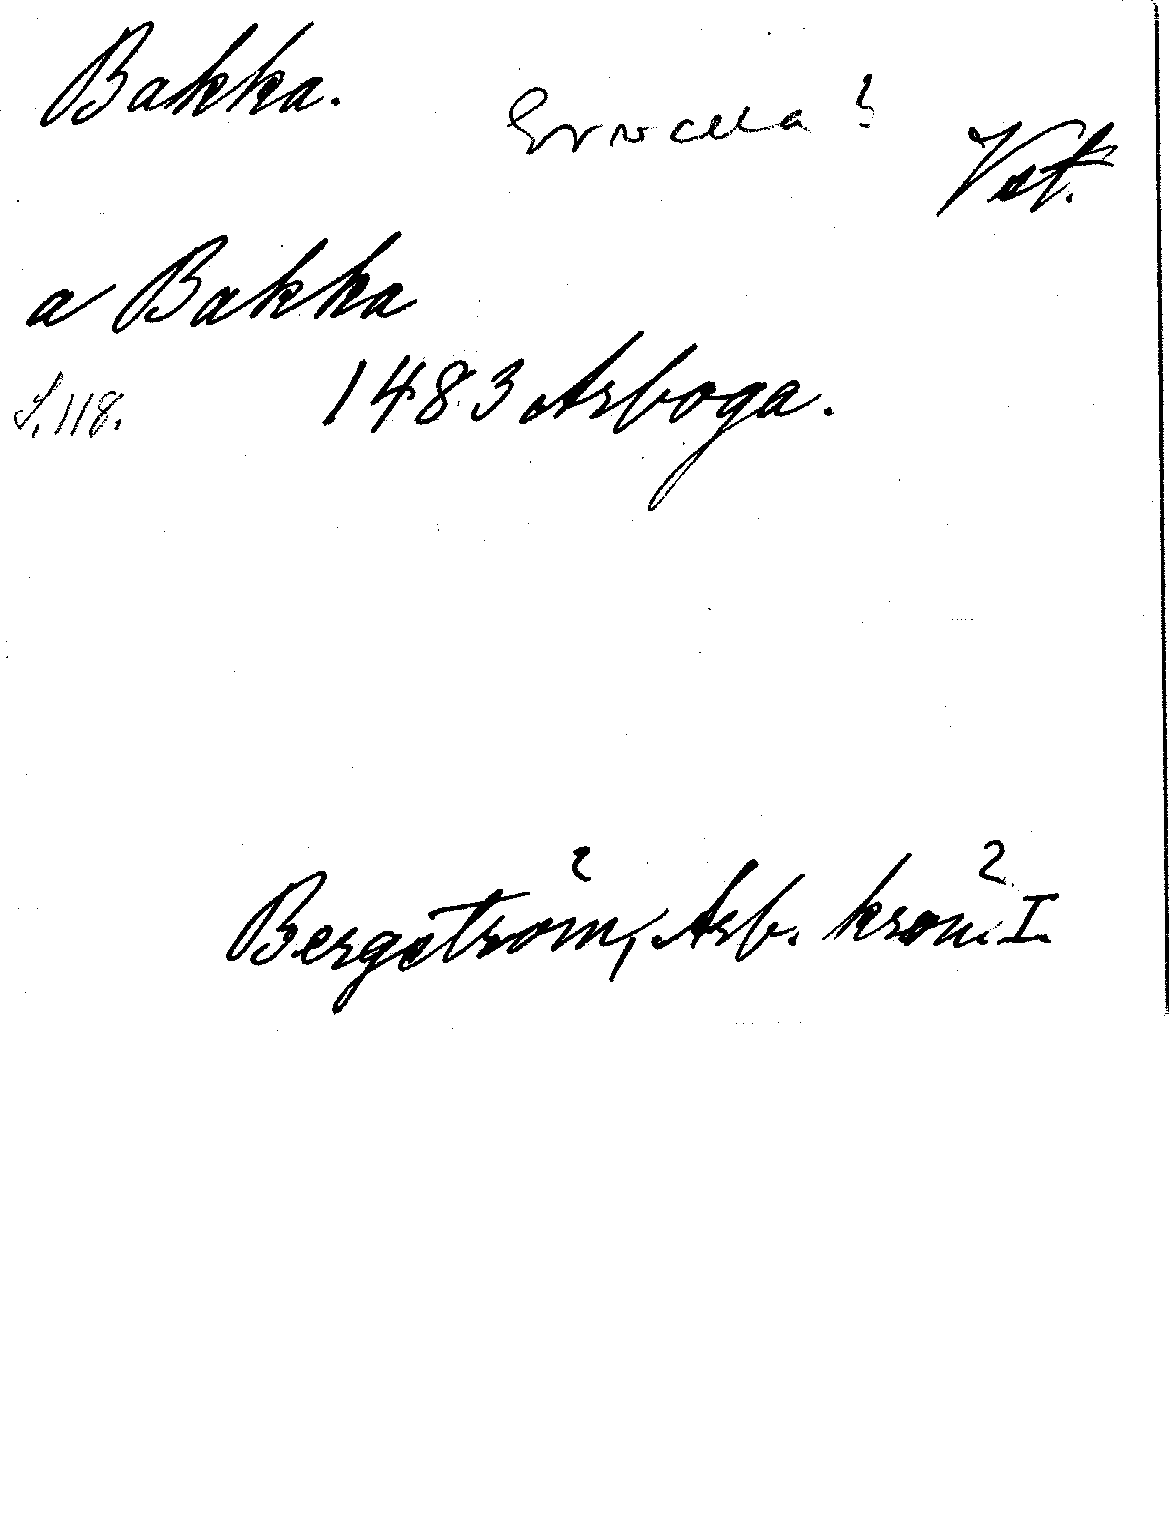 Bakka.
Vst.
a Bakka
S. 118.
1483 Arboga.
Bergström, Arb. krön. I